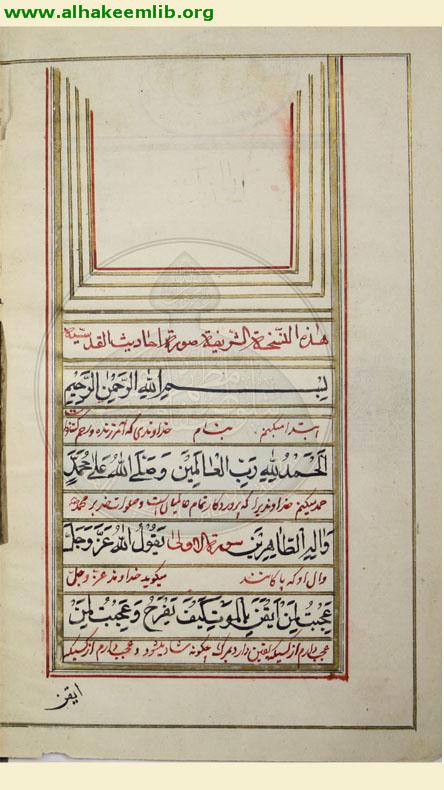 www.alhakeemlib.org
هذه النسخة الشريفة صورة احاديث القدسية
بسم الله الرحمن الرحيم
ابتدا میکنم بنام خداوندی که آمرزنده و رحم
الحمد لله رب العالمين وصلى الله على محمد
حمد میکنم خداوندیرا که پروردکار تمام عالمیان است و صلوات خدا بر محمد
واله الطاهرين سورة الاولى يقول الله عز وجل
وال او که پاکانند میکوید خداوند عز وجل
عجبت لمن ايقن بالموت كيف يفرح وعجبت لمن
عجب دارم از کسیکه یقین دارد بمرک چکونه شاد میشود و عجب دارم از کسیکه
ايقن